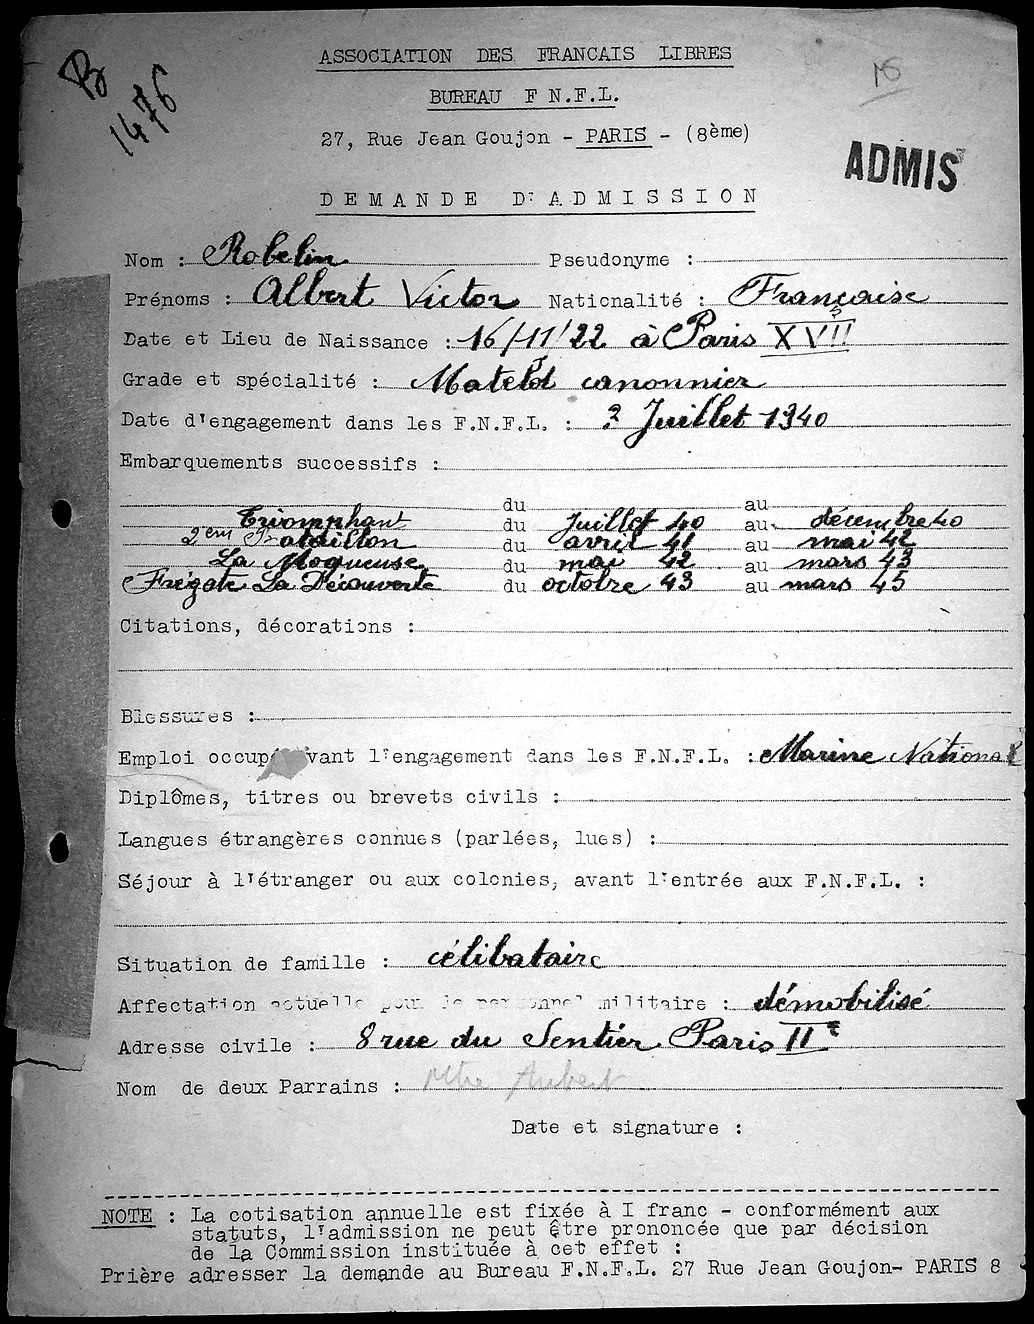 B
1476
ASSOCIATION DES FRANCAIS LIBRES
BUREAU F N.F.L.
27, Rue Jean Goujon - PARIS - (8ème)
ADMIS
DEMANDE D'ADMISSION
Nom : Robelin Pseudonyme :
Prénoms : Albert Victor Nationalité : Française
Date et Lieu de Naissance : 16/11/22 à Paris XVII
Grade et spécialité : Matelot canonnier
Date d'engagement dans les F.N.F.L. : 2 Juillet 1940
Embarquements successifs :
du au
Triomphant du Juillet 40 au décembre 40
2em Bataillon du avril 41 au mai 42
La Moqueuse du mai 42 au mars 43
Frégate La Découverte du octobre 43 au mars 45
Citations, décorations :
Blessures :
Emploi occupé avant l'engagement dans les F.N.F.L. : Marine National
Diplômes, titres ou brevets civils :
Langues étrangères connues (parlées, lues) :
Séjour à l'étranger ou aux colonies, avant l'entrée aux F.N.F.L. :
Situation de famille : célibataire
Affectation actuelle pour le personnel militaire : démobilisé
Adresse civile : 8 rue du Sentier Paris II e
Nom de deux Parrains : Aubert
Date et signature :
NOTE : La cotisation annuelle est fixée à I franc - conformément aux
statuts, l'admission ne peut être prononcée que par décision
de la Commission instituée à cet effet :
Prière adresser la demande au Bureau F.N.F.L. 27 Rue Jean Goujon- PARIS 8